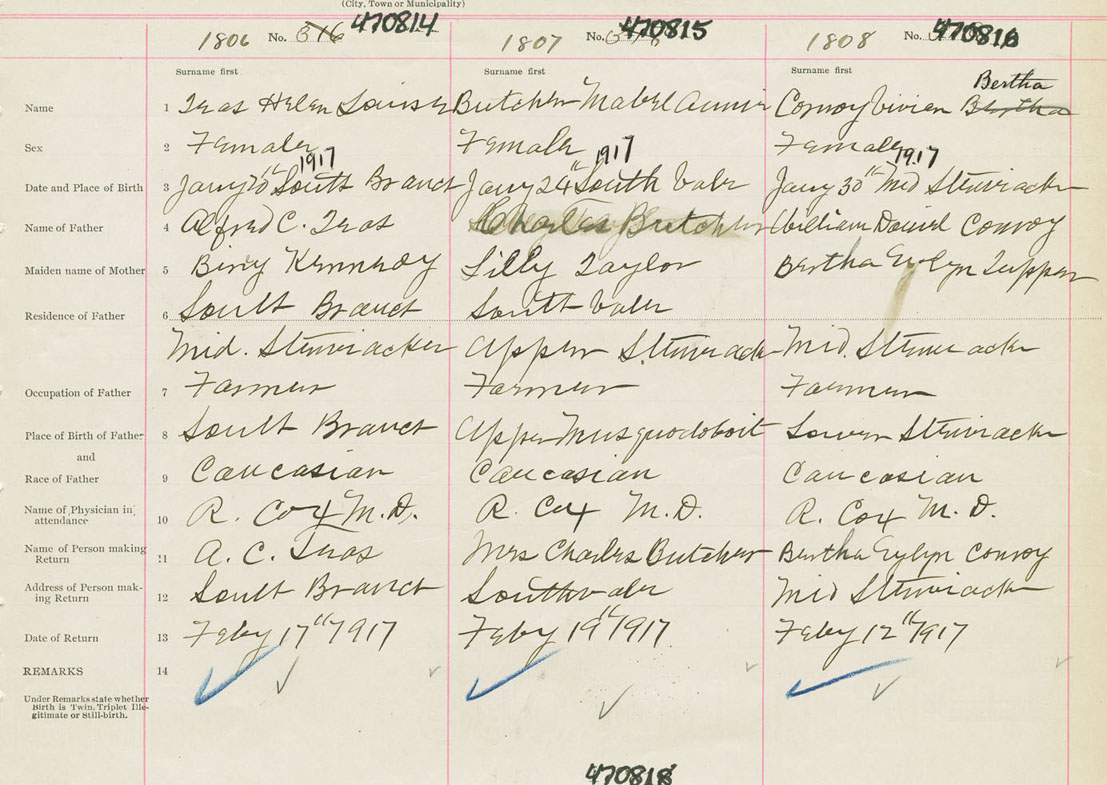 (City, Town or Municipality)
1806 No. 316 470814 1807 No. 470815 1808 No. 470816
Surname first Surname first Surname first
Name 1 Helen Louise Butcher Mabel Annie Conroy Vivien Bertha Bertha
Sex 2 Female Female Female
1917 1917 1917
Date and Place of Birth 3 Jany 20th South Branch Jany 24th South Vale Jany 30th Mid Stewiacke
Name of Father 4 Alfred C. Charles Butcher William Daniel Conroy
Maiden name of Mother 5 Kennedy Lilly Taylor Bertha Evlyn Tupper
South Branch South Vale
Residence of Father 6
Mid. Stewiacke Upper Stewiacke Mid. Stewiacke
Occupation of Father 7 Farmer Farmer Farmer
Place of Birth of Father 8 South Branch Upper Musquodoboit Lower Stewiacke
and
Race of Father 9 Caucasian Caucasian Caucasian
Name of Physician in
attendance 10 R. Cox M.D. R. Cox M.D. R. Cox M.D.
Name of Person making
Return 11 A. C. Mrs Charles Butcher Bertha Evlyn Conroy
Address of Person mak-
ing Return 12 South Branch Southvale Mid Stewiacke
Date of Return 13 Feby 17th 1917 Feby 19th 1917 Feby 12th 1917
REMARKS 14
Under Remarks state whether
Birth is Twin, Triplet Ille-
gitimate or Still-birth.
470818